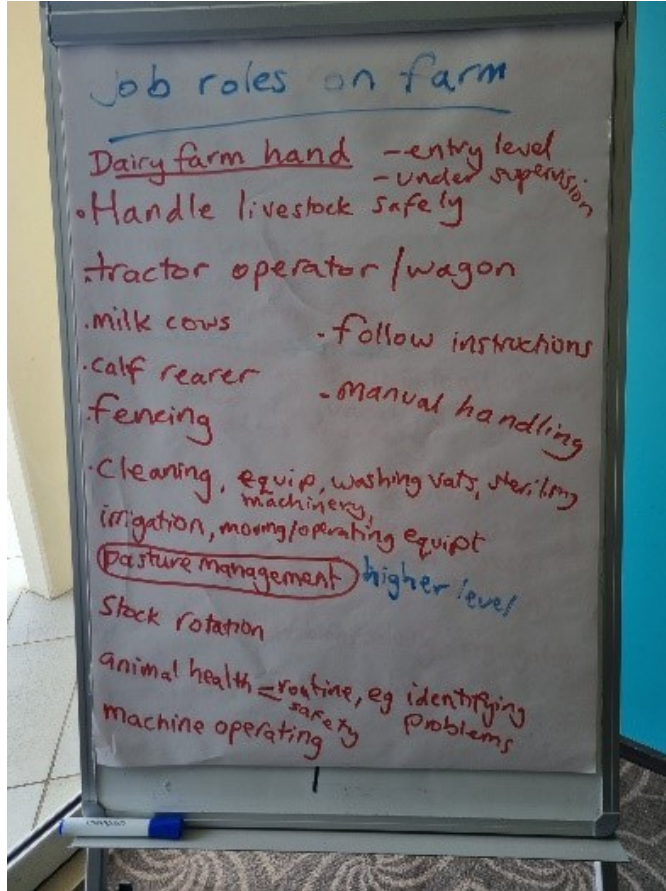 job roles on farm
Dairy farm hand - entry level
- under supervision
• Handle livestock safely
• tractor operator / wagon
• milk cows
• follow instructions
• calf rearer
- manual handling
• fencing
• Cleaning, equip, washing vats, sterilising
machinery,
irrigation, moving/operating equipt
pasture management higher level
stock rotation
animal health = routine, eg identifying
safety problems
machine operating